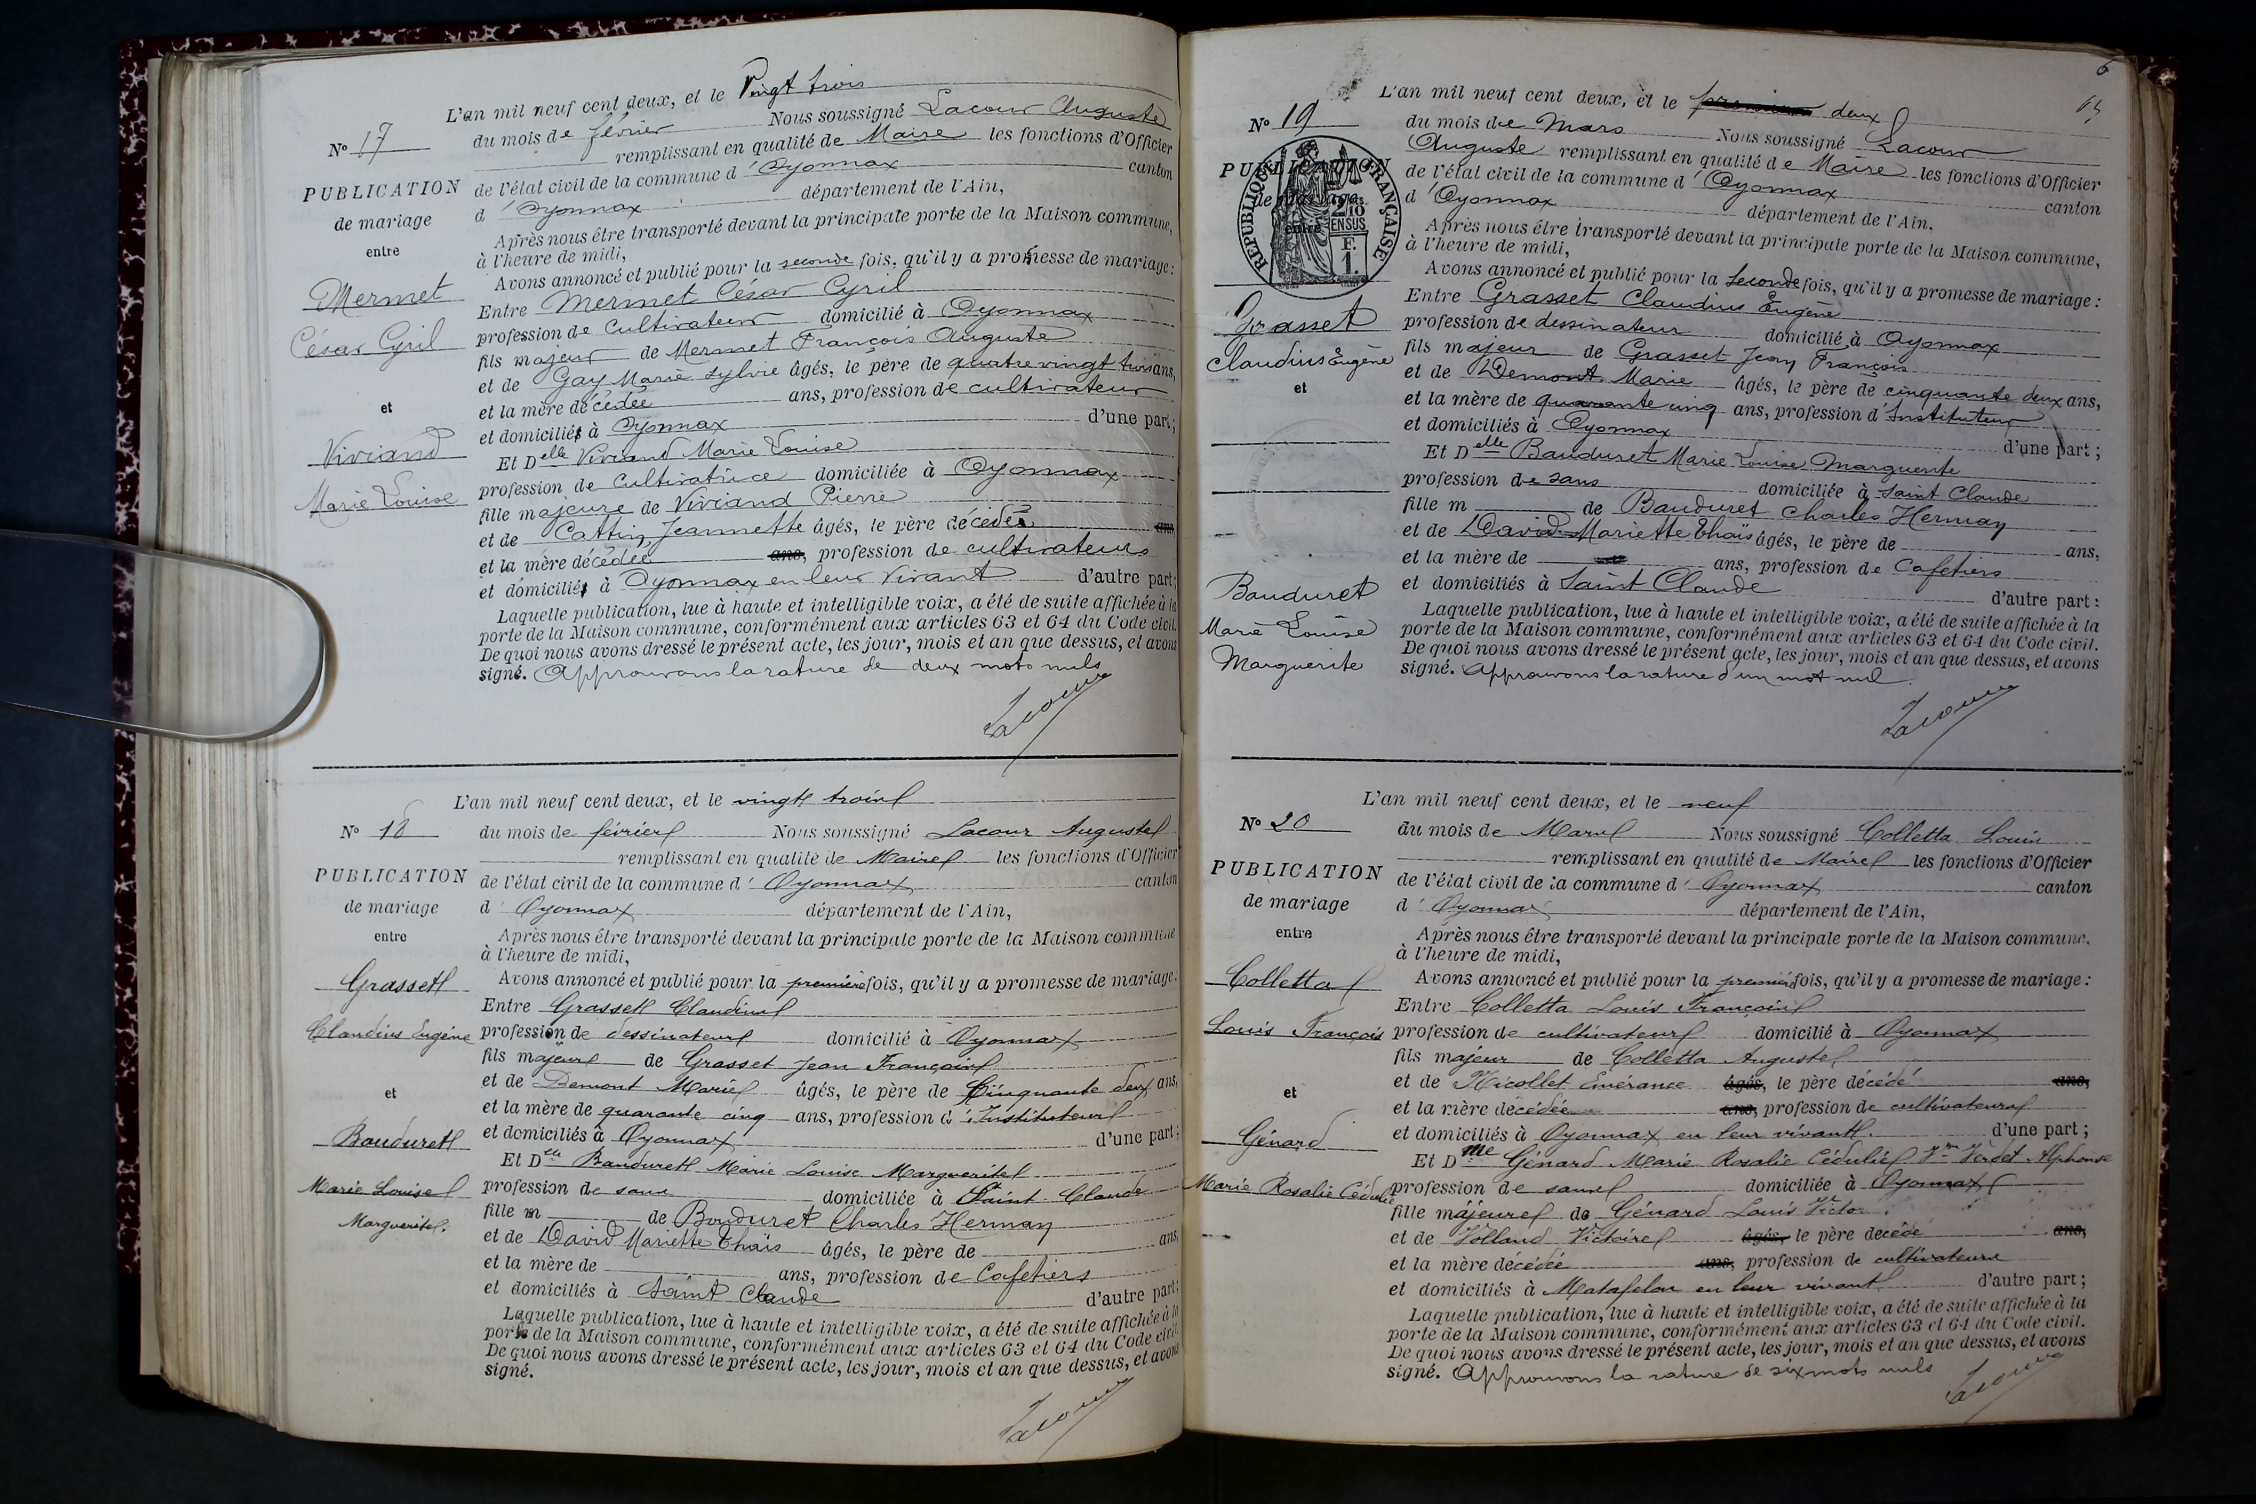 L'an mil neuf cent deux, et le Vingt trois
N° 17
du mois de février Nous soussigné Lacour Auguste
remplissant en qualité de Maire les fonctions d'Officier
PUBLICATION
de l'état civil de la commune d'Oyonnax canton
de mariage
d'Oyonnax département de l'Ain,
entre
Après nous être transporté devant la principale porte de la Maison commune,
à l'heure de midi,
Avons annoncé et publié pour la seconde fois, qu'il y a promesse de mariage :
Mermet
Entre Mermet César Cyril
César Cyril
profession de cultivateur domicilié à Oyonnax
fils majeur de Mermet François Auguste
et de Gay Marie Sylvie âgés, le père de quatre vingt trois ans,
et
et la mère décédée ans, profession de cultivateur
et domiciliés à Oyonnax d'une part ;
Viviand
Et Delle Viviand Marie Louise
Marie Louise
profession de cultivatrice domiciliée à Oyonnax
fille majeure de Viviand Pierre
et de Cattin Jeannette âgés, le père décédé ans
et la mère décédée ans, profession de cultivateurs
et domiciliés à Oyonnax en leur vivant d'autre part ;
Laquelle publication, lue à haute et intelligible voix, a été de suite affichée à la
porte de la Maison commune, conformément aux articles 63 et 64 du Code civil.
De quoi nous avons dressé le présent acte, les jour, mois et an que dessus, et avons
signé. Approuvons la rature de deux mots nuls
Lacour
L'an mil neuf cent deux, et le vingt trois
N° 18
du mois de février Nous soussigné Lacour Auguste
remplissant en qualité de Maire les fonctions d'Officier
PUBLICATION
de l'état civil de la commune d'Oyonnax canton
de mariage
d'Oyonnax département de l'Ain,
entre
Après nous être transporté devant la principale porte de la Maison commune
à l'heure de midi,
Grasset
Avons annoncé et publié pour la première fois, qu'il y a promesse de mariage :
Entre Grasset Claudius
Claudius Eugène
profession de dessinateur domicilié à Oyonnax
fils majeur de Grasset Jean François
et de Demont Marie âgés, le père de Cinquante deux ans,
et
et la mère de quarante cinq ans, profession d'Instituteur
et domiciliés à Oyonnax d'une part ;
Bauduret
Et Delle Bauduret Marie Louise Marguerite
Marie Louise
profession de sans domiciliée à Saint Claude
Marguerite.
fille m de Bauduret Charles Herman
et de David Mariette Thaïs âgés, le père de ans,
et la mère de ans, profession de Cafetiers
et domiciliés à Saint Claude d'autre part ;
Laquelle publication, lue à haute et intelligible voix, a été de suite affichée à la
porte de la Maison commune, conformément aux articles 63 et 64 du Code civil
De quoi nous avons dressé le présent acte, les jour, mois et an que dessus, et avons
signé.
Lacour
6
L'an mil neuf cent deux, et le premier deux
N° 19
du mois de Mars Nous soussigné Lacour
Auguste remplissant en qualité de Maire les fonctions d'Officier
PUBLICATION
de l'état civil de la commune d'Oyonnax canton
de mariage
d'Oyonnax département de l'Ain,
entre
RÉPUBLIQUE FRANÇAISE
2/10 EN SUS
F. 1.
Après nous être transporté devant la principale porte de la Maison commune,
à l'heure de midi,
Avons annoncé et publié pour la seconde fois, qu'il y a promesse de mariage :
Entre Grasset Claudius Eugène
Grasset
profession de dessinateur domicilié à Oyonnax
Claudius Eugène
fils majeur de Grasset Jean François
et de Demont Marie âgés, le père de cinquante deux ans,
et
et la mère de quarante cinq ans, profession d'Instituteur
et domiciliés à Oyonnax d'une part ;
Et Delle Bauduret Marie Louise Marguerite
profession de sans domiciliée à Saint Claude
fille m de Bauduret Charles Herman
et de David Mariette Thaïs âgés, le père de ans,
et la mère de ans, profession de Cafetiers
Bauduret
et domiciliés à Saint Claude d'autre part :
Marie Louise
Marguerite
Laquelle publication, lue à haute et intelligible voix, a été de suite affichée à la
porte de la Maison commune, conformément aux articles 63 et 64 du Code civil.
De quoi nous avons dressé le présent acte, les jour, mois et an que dessus, et avons
signé. Approuvons la rature d'un mot nul.
Lacour
L'an mil neuf cent deux, et le neuf
N° 20
du mois de Mars Nous soussigné Colletta Louis
remplissant en qualité de Maire les fonctions d'Officier
PUBLICATION
de l'état civil de la commune d'Oyonnax canton
de mariage
d'Oyonnax département de l'Ain,
entre
Après nous être transporté devant la principale porte de la Maison commune,
à l'heure de midi,
Colletta
Avons annoncé et publié pour la première fois, qu'il y a promesse de mariage :
Entre Colletta Louis François
Louis François
profession de cultivateur domicilié à Oyonnax
fils majeur de Colletta Auguste
et de Nicollet Emérance âgés, le père décédé ans,
et
et la mère décédée ans, profession de cultivateurs
et domiciliés à Oyonnax en leur vivant. d'une part ;
Génard
Et Dme Génard Marie Rosalie Cédulie Vve Verdet Alphonse
Marie Rosalie Cédulie
profession de sans domiciliée à Oyonnax
fille majeure de Génard Louis Victor
et de Volland Victoire âgés, le père décédé ans,
et la mère décédée ans, profession de cultivateurs
et domiciliés à Matafelon en leur vivant d'autre part ;
Laquelle publication, lue à haute et intelligible voix, a été de suite affichée à la
porte de la Maison commune, conformément aux articles 63 et 64 du Code civil.
De quoi nous avons dressé le présent acte, les jour, mois et an que dessus, et avons
signé. Approuvons la rature de six mots nuls
Lacour